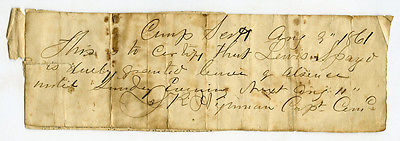 Camp Scott Aug 3" 1861
This is to certify that Lewis Spayd
is hereby granted leave of absence
until Sunday Evening next Aug 10"
Wynman Capt Comd